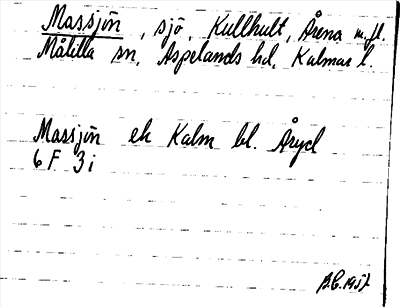 Massjön, sjö, Kullhult, Årena m.fl.
Målilla sn, Aspelands hd, Kalmar l.
Massjön ek Kalm bl. Åryd
6 F 3 i
1957